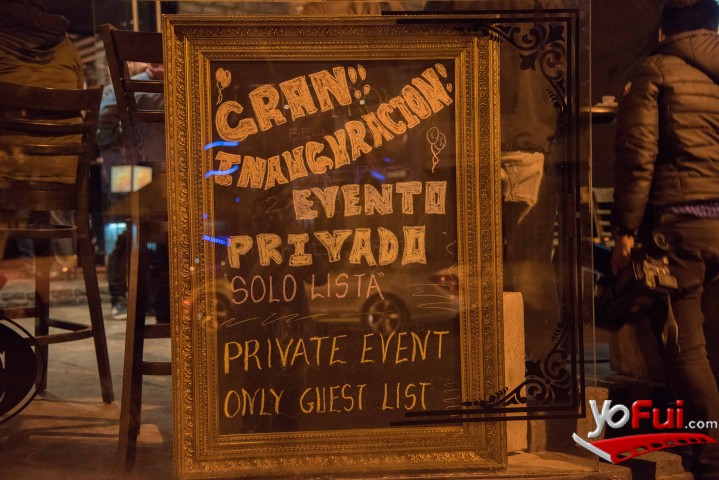 GRAN!!
INAUGURACION!
EVENTO
PRIVADO
SOLO LISTA
PRIVATE EVENT
ONLY GUEST LIST
yoFui.com